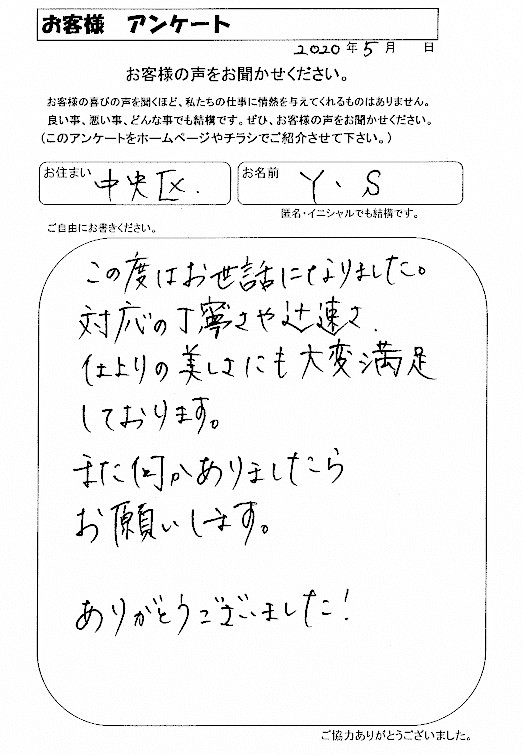 お客様 アンケート
2020年5月 日
お客様の声をお聞かせください。
お客様の喜びの声を聞くほど、私たちの仕事に情熱を与えてくれるものはありません。
良い事、悪い事、どんな事でも結構です。ぜひ、お客様の声をお聞かせください。
(このアンケートをホームページやチラシでご紹介させて下さい。)
お住まい 中央区.
お名前 Y、S
匿名・イニシャルでも結構です。
ご自由にお書きください。
この度はお世話になりました。
対応の丁寧さや迅速さ、
仕上りの美しさにも大変満足
しております。
また何かありましたら
お願いします。
ありがとうございました!
ご協力ありがとうございました。